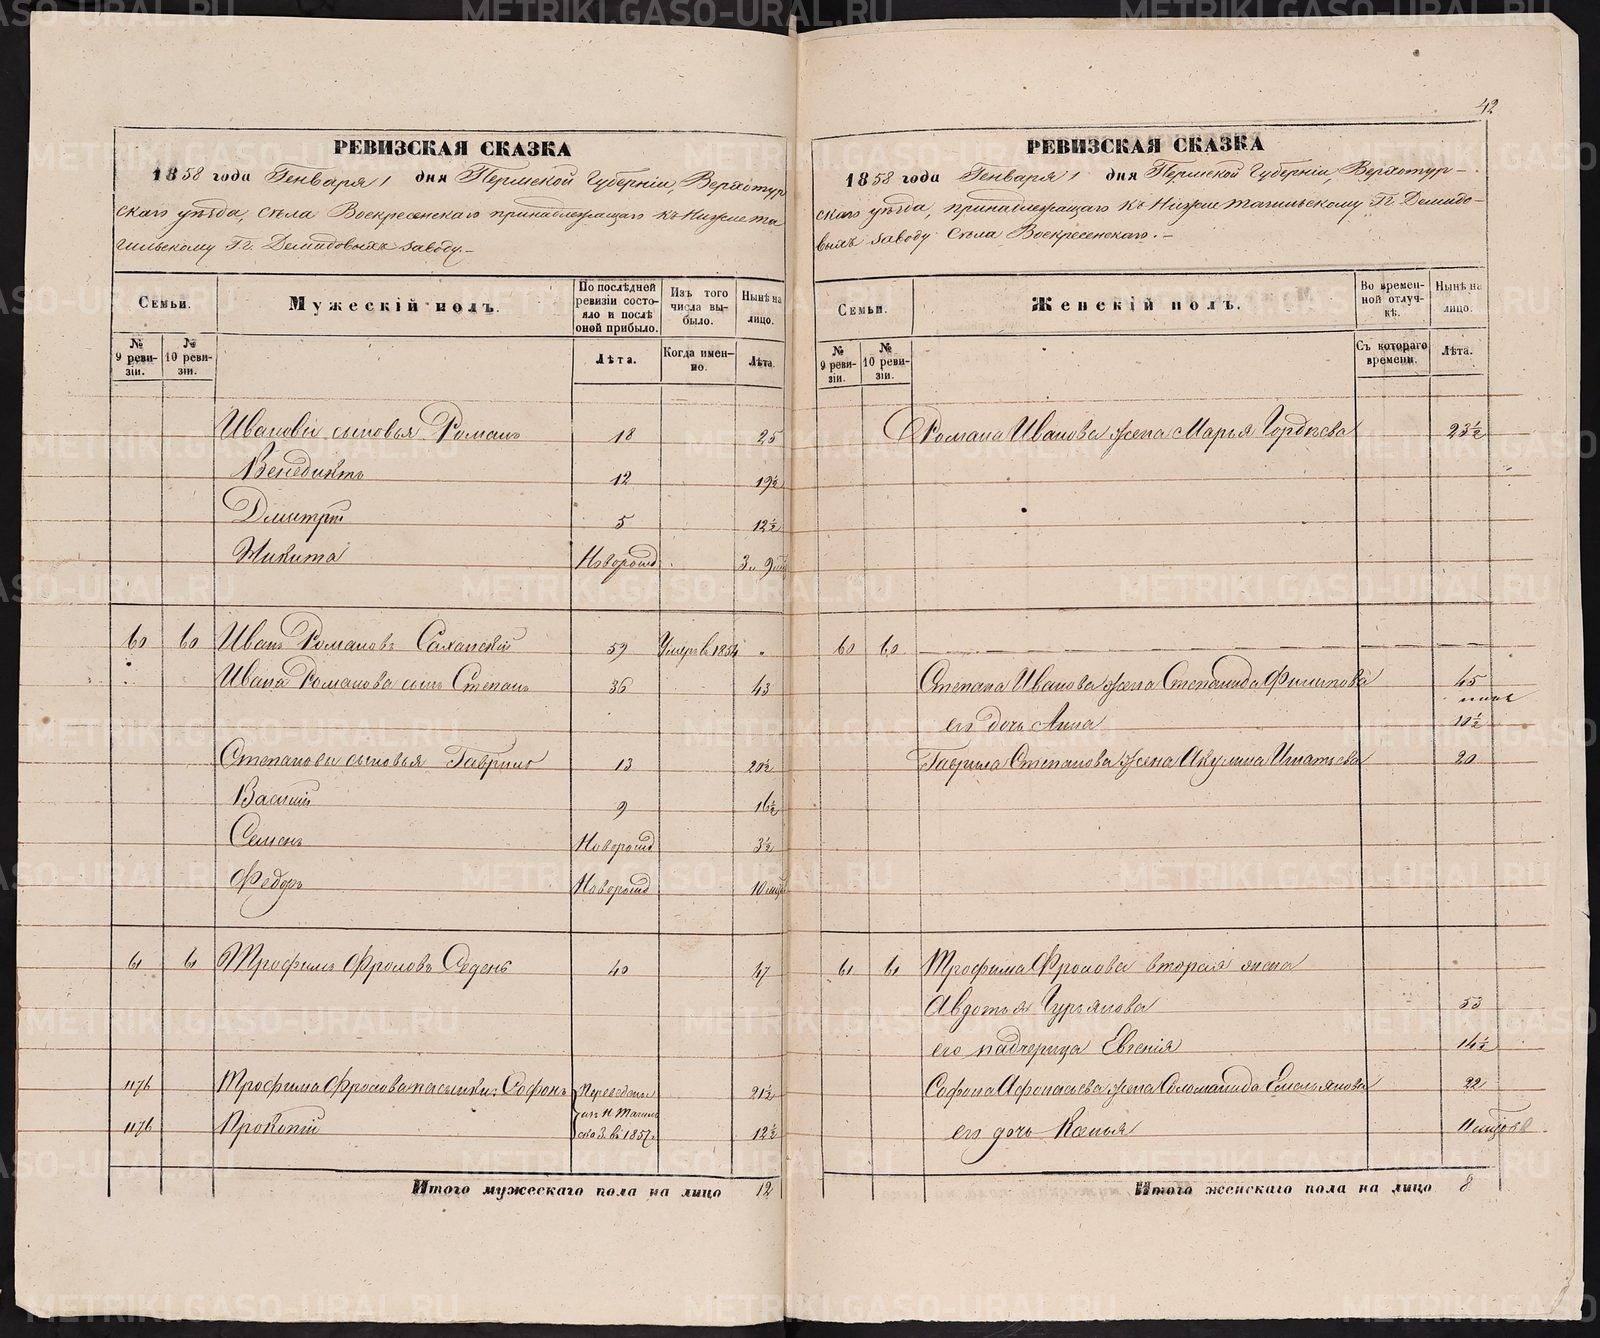 42
РЕВИЗСКАЯ СКАЗКА
1858 года Генваря 1 дня Пермской Губернии, Верхотур
скаго уѣзда, села Воскресенскаго принадлежащаго къ Нижнета
гильскому Гг. Демидовыхъ заводу.
Семьи.
№ 9 ревизіи.
№ 10 ревизіи.
Мужескій полъ.
По послѣдней ревизіи состояло и послѣ оной прибыло.
Лѣта.
Изъ того числа выбыло.
Когда именно.
Нынѣ на лицо.
Лѣта.
Ивановы сыновья Романъ 18 25
Венедиктъ 12 19½
Дмитрій 5 12½
Никита Новорожд 3 и 9 мѣс
60 60 Иванъ Романовъ 59 Умеръ въ 1854 „
Ивана Романова сынъ Степанъ 36 43
Степановы сыновья Гаврило 13 20½
Василій 9 16½
Семенъ Новорожд 3½
Федоръ Новорожд 10 мѣс
61 61 Трофимъ Фроловъ Седенъ 40 47
1176 Трофима Фролова пасынки: Софонъ Переведены 21½
изъ Н. Тагиль
1176 Прокопій ско З. въ 1857 г. 12½
Итого мужескаго пола на лицо 12
РЕВИЗСКАЯ СКАЗКА
1858 года Генваря 1 дня Пермской Губерніи, Верхотур-
скаго уѣзда, принадлежащаго къ Нижнетагильскому Гг. Демидо-
выхъ заводу Села Воскресенскаго.
Семьи.
№ 9 ревизіи.
№ 10 ревизіи.
Женскій полъ.
Во временной отлучкѣ.
Съ котораго времени.
Нынѣ на лицо.
Лѣта.
Романа Иванова жена Марья Гордѣева 23½
60 60
Степана Иванова жена Степанида Филипова 45
его дочь Анна 10½
Гаврила Степанова жена Акулина Игнатьева 20
61 61 Трофима Фролова вторая жена
Авдотья Гурьянова 53
его падчерица Евгенія 14½
Софона Афонасьева жена Соломанида Емельянова 22
его дочь Ксенья 11 мѣсяцовъ
Итого женскаго пола на лицо 8
METRIKI.GASO-URAL.RU